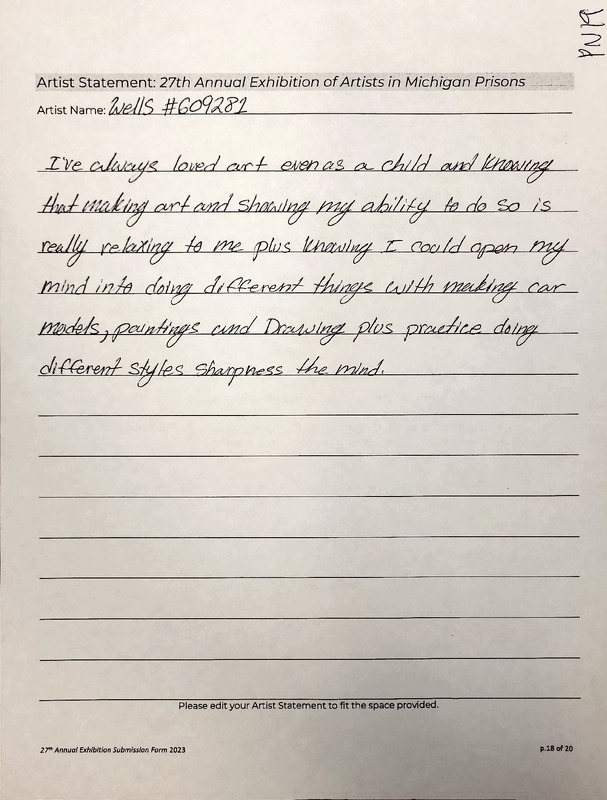 PN19
Artist Statement: 27th Annual Exhibition of Artists in Michigan Prisons
Artist Name: Wells #609281
I've always loved art even as a child and knowing
that making art and showing my ability to do so is
really relaxing to me plus knowing I could open my
mind into doing different things with making car
models, paintings and Drawing plus practice doing
different styles sharpness the mind.
Please edit your Artist Statement to fit the space provided.
27th Annual Exhibition Submission Form 2023
p.18 of 20